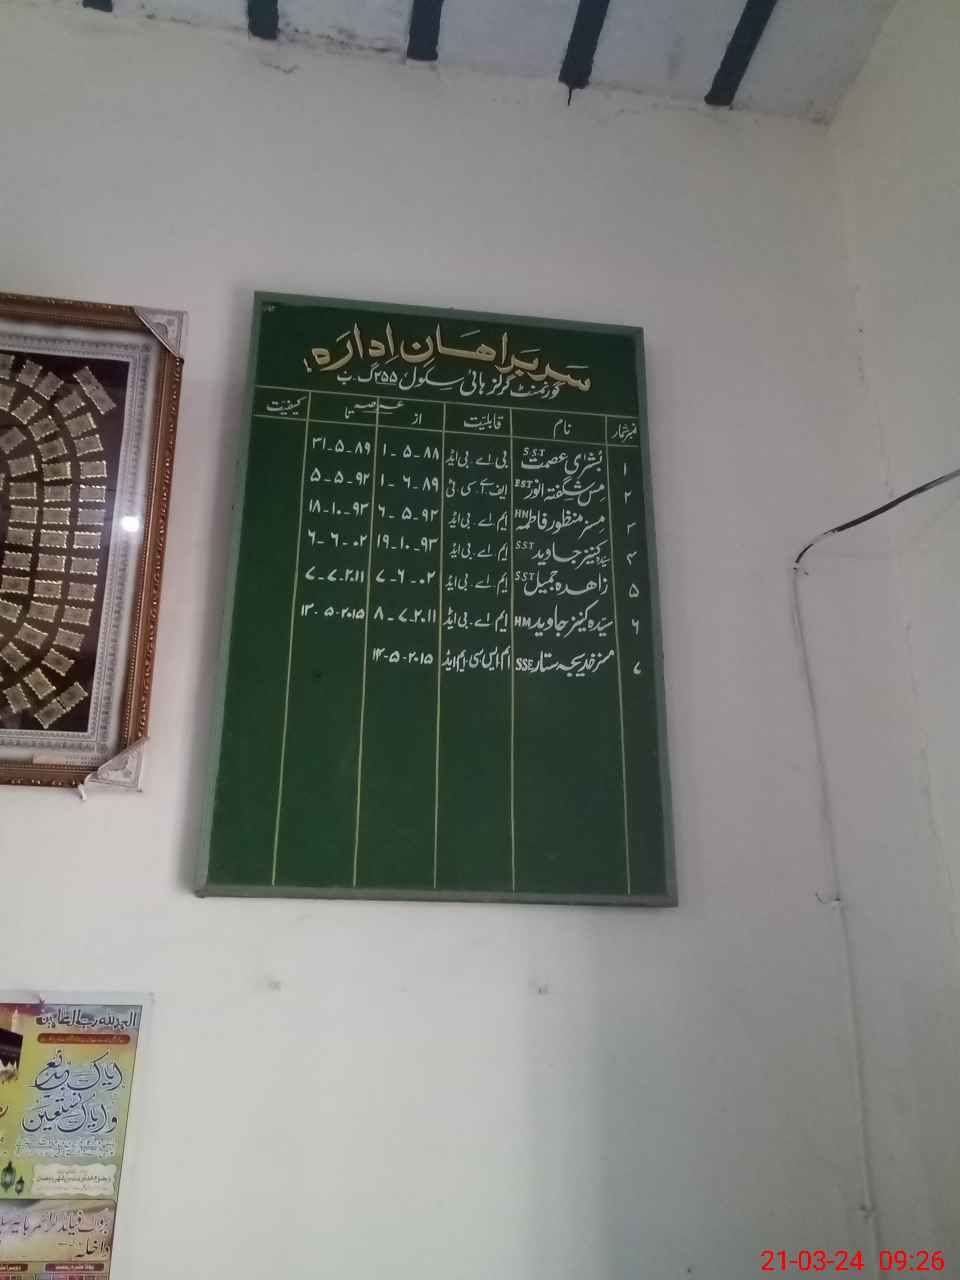 سربراھان اِدارَہ
گورنمنٹ گرلز ہائی سکول ۲۵۵ گ۔ب
نمبرشمار نام قابلیّت عرصہ کیفیّت
از تا
۱ بُشرٰی عصمت S.S.T بی اے۔بی ایڈ ۱-۵-۸۸ ۳۱-۵-۸۹
۲ مِس شگفتہ انور EST ایف اے۔سی ٹی ۱-۶-۸۹ ۵-۵-۹۲
۳ مِسز منظور فاطمہ HM ایم اے۔بی ایڈ ۶-۵-۹۲ ۱۸-۱۰-۹۳
۴ سیّدہ کنیز جاوید S.S.T ایم اے۔بی ایڈ ۱۹-۱۰-۹۳ ۶-۶-۰۲
۵ زاھدہ جمیل S.S.T ایم اے۔بی ایڈ ۷-۶-۰۲ ۷-۷-۲۰۱۱
۶ سیّدہ کنیز جاوید HM ایم اے۔بی ایڈ ۸-۷-۲۰۱۱ ۱۳-۵-۲۰۱۵
۷ مسز خدیجہ ستار SSE ایم ایس سی۔ایم ایڈ ۱۴-۵-۲۰۱۵
الحمدللہ رب العالمین
ایاک نعبد
وایاک نستعین
داخلہ
21-03-24 09:26